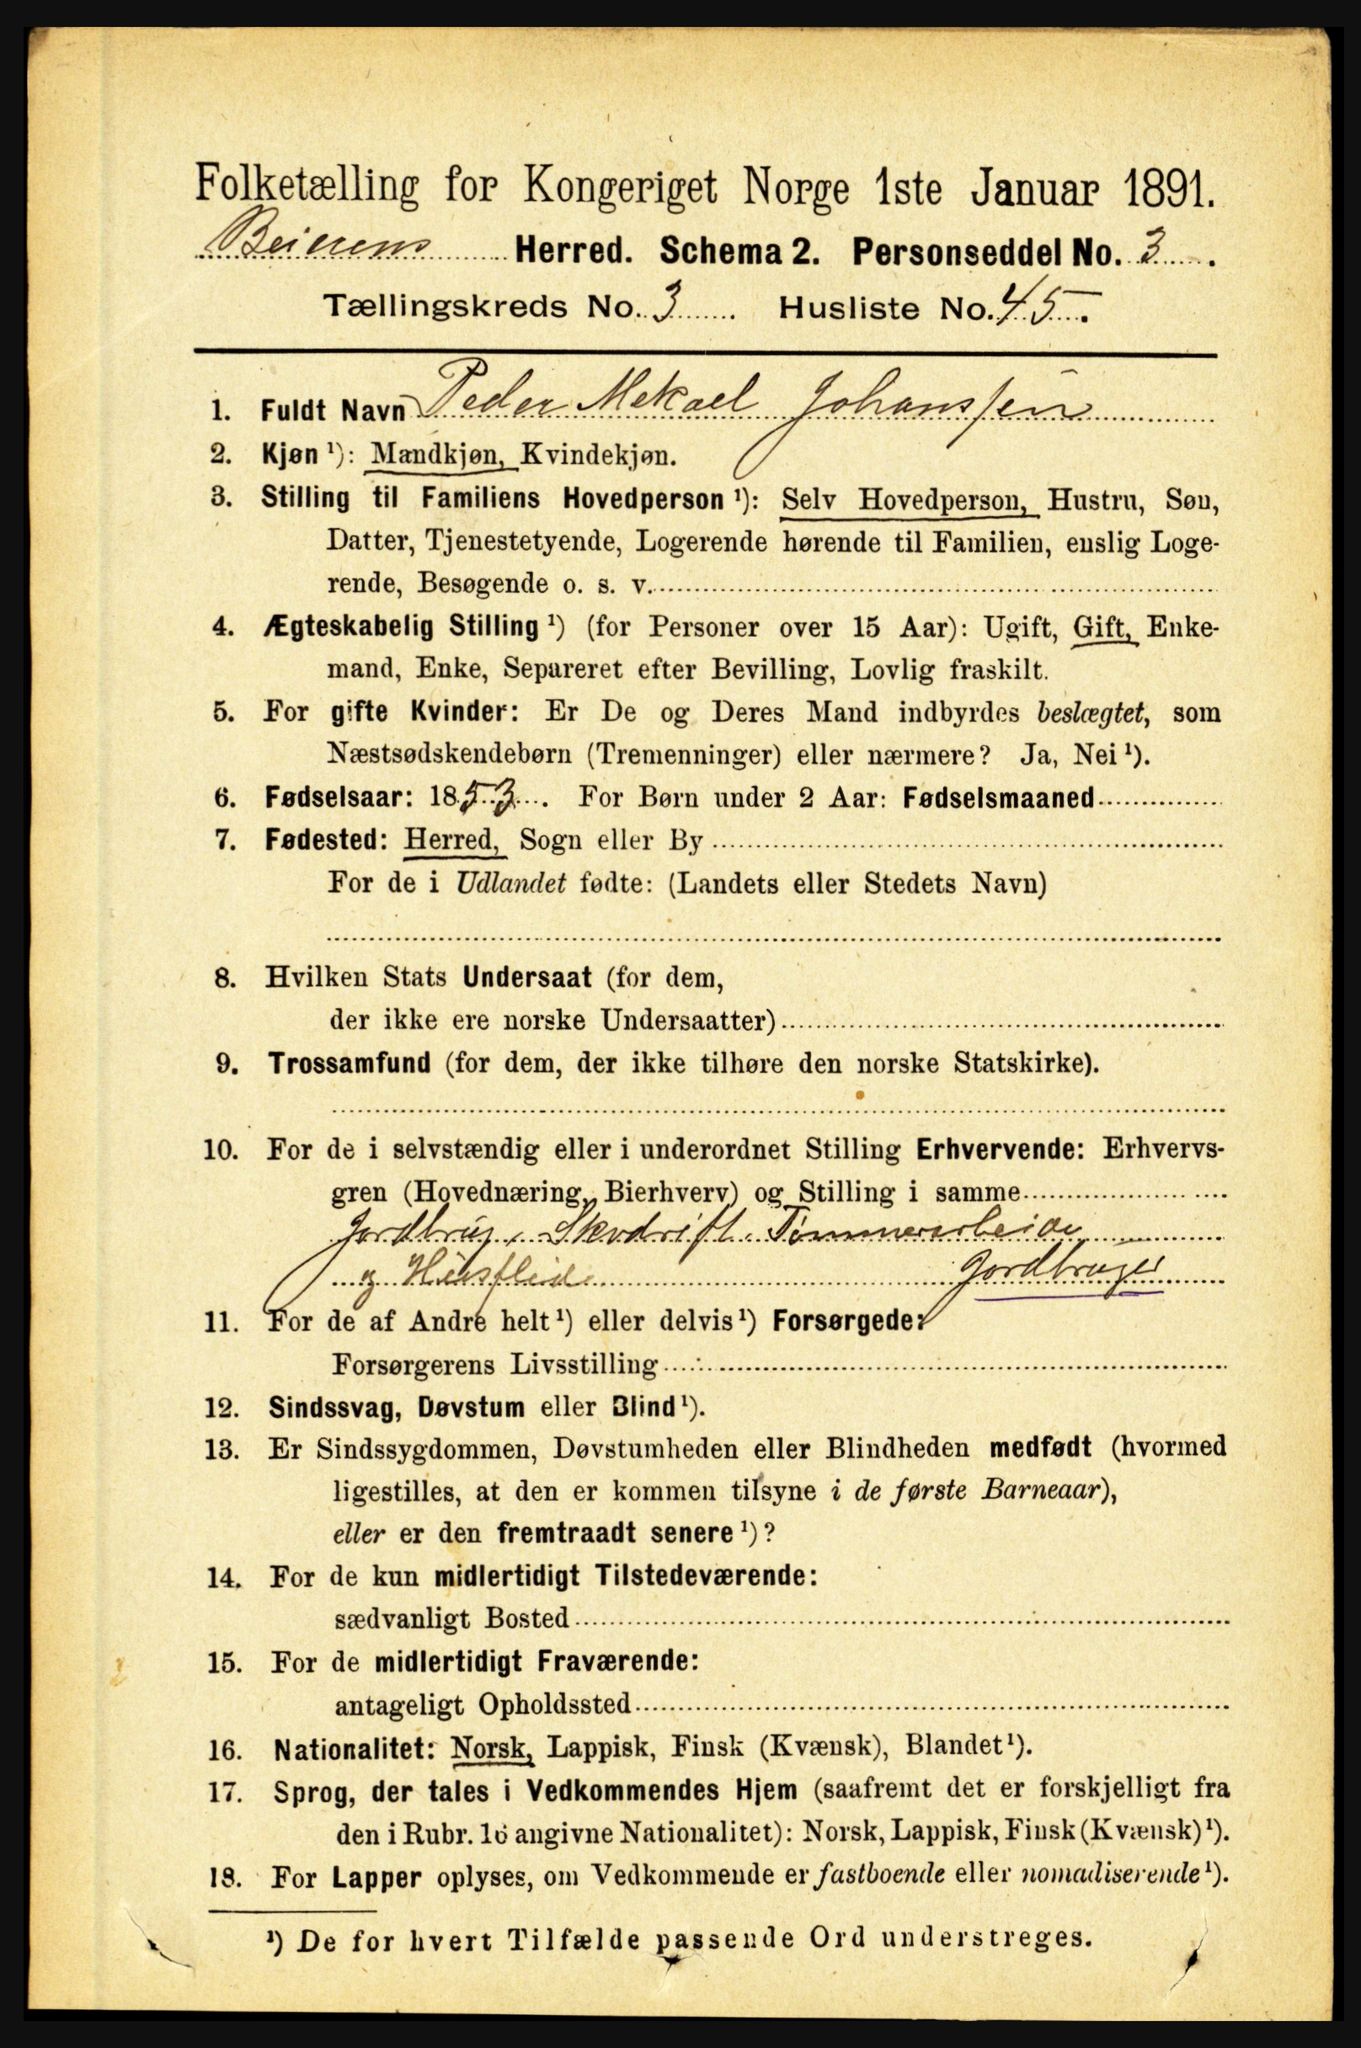 Folketælling for Kongeriget Norge 1ste Januar 1891.
Beierens Herred. Schema 2. Personseddel No. 3.
Tællingskreds No. 3 Husliste No. 45.
1. Fuldt Navn Peder Mekael Johanssen
2. Kjøn ¹): Mandkjøn, Kvindekjøn.
3. Stilling til Familiens Hovedperson ¹): Selv Hovedperson, Hustru, Søn,
Datter, Tjenestetyende, Logerende hørende til Familien, enslig Loge-
rende, Besøgende o. s. v.
4. Ægteskabelig Stilling ¹) (for Personer over 15 Aar): Ugift, Gift, Enke-
mand, Enke, Separeret efter Bevilling, Lovlig fraskilt.
5. For gifte Kvinder: Er De og Deres Mand indbyrdes beslægtet, som
Næstsødskendebørn (Tremenninger) eller nærmere? Ja, Nei ¹).
6. Fødselsaar: 1853. For Børn under 2 Aar: Fødselsmaaned
7. Fødested: Herred, Sogn eller By
For de i Udlandet fødte: (Landets eller Stedets Navn)
8. Hvilken Stats Undersaat (for dem,
der ikke ere norske Undersaatter)
9. Trossamfund (for dem, der ikke tilhøre den norske Statskirke).
10. For de i selvstændig eller i underordnet Stilling Erhvervende: Erhvervs-
gren (Hovednæring, Bierhverv) og Stilling i samme
Jordbrug, Skodrift, Tømmerarbeide
og Husflid Jordbruger
11. For de af Andre helt ¹) eller delvis ¹) Forsørgede:
Forsørgerens Livsstilling
12. Sindssvag, Døvstum eller Blind ¹).
13. Er Sindssygdommen, Døvstumheden eller Blindheden medfødt (hvormed
ligestilles, at den er kommen tilsyne i de første Barneaar),
eller er den fremtraadt senere ¹)?
14. For de kun midlertidigt Tilstedeværende:
sædvanligt Bosted
15. For de midlertidigt Fraværende:
antageligt Opholdssted
16. Nationalitet: Norsk, Lappisk, Finsk (Kvænsk), Blandet ¹).
17. Sprog, der tales i Vedkommendes Hjem (saafremt det er forskjelligt fra
den i Rubr. 16 angivne Nationalitet): Norsk, Lappisk, Finsk (Kvænsk) ¹).
18. For Lapper oplyses, om Vedkommende er fastboende eller nomadiserende ¹).
¹) De for hvert Tilfælde passende Ord understreges.